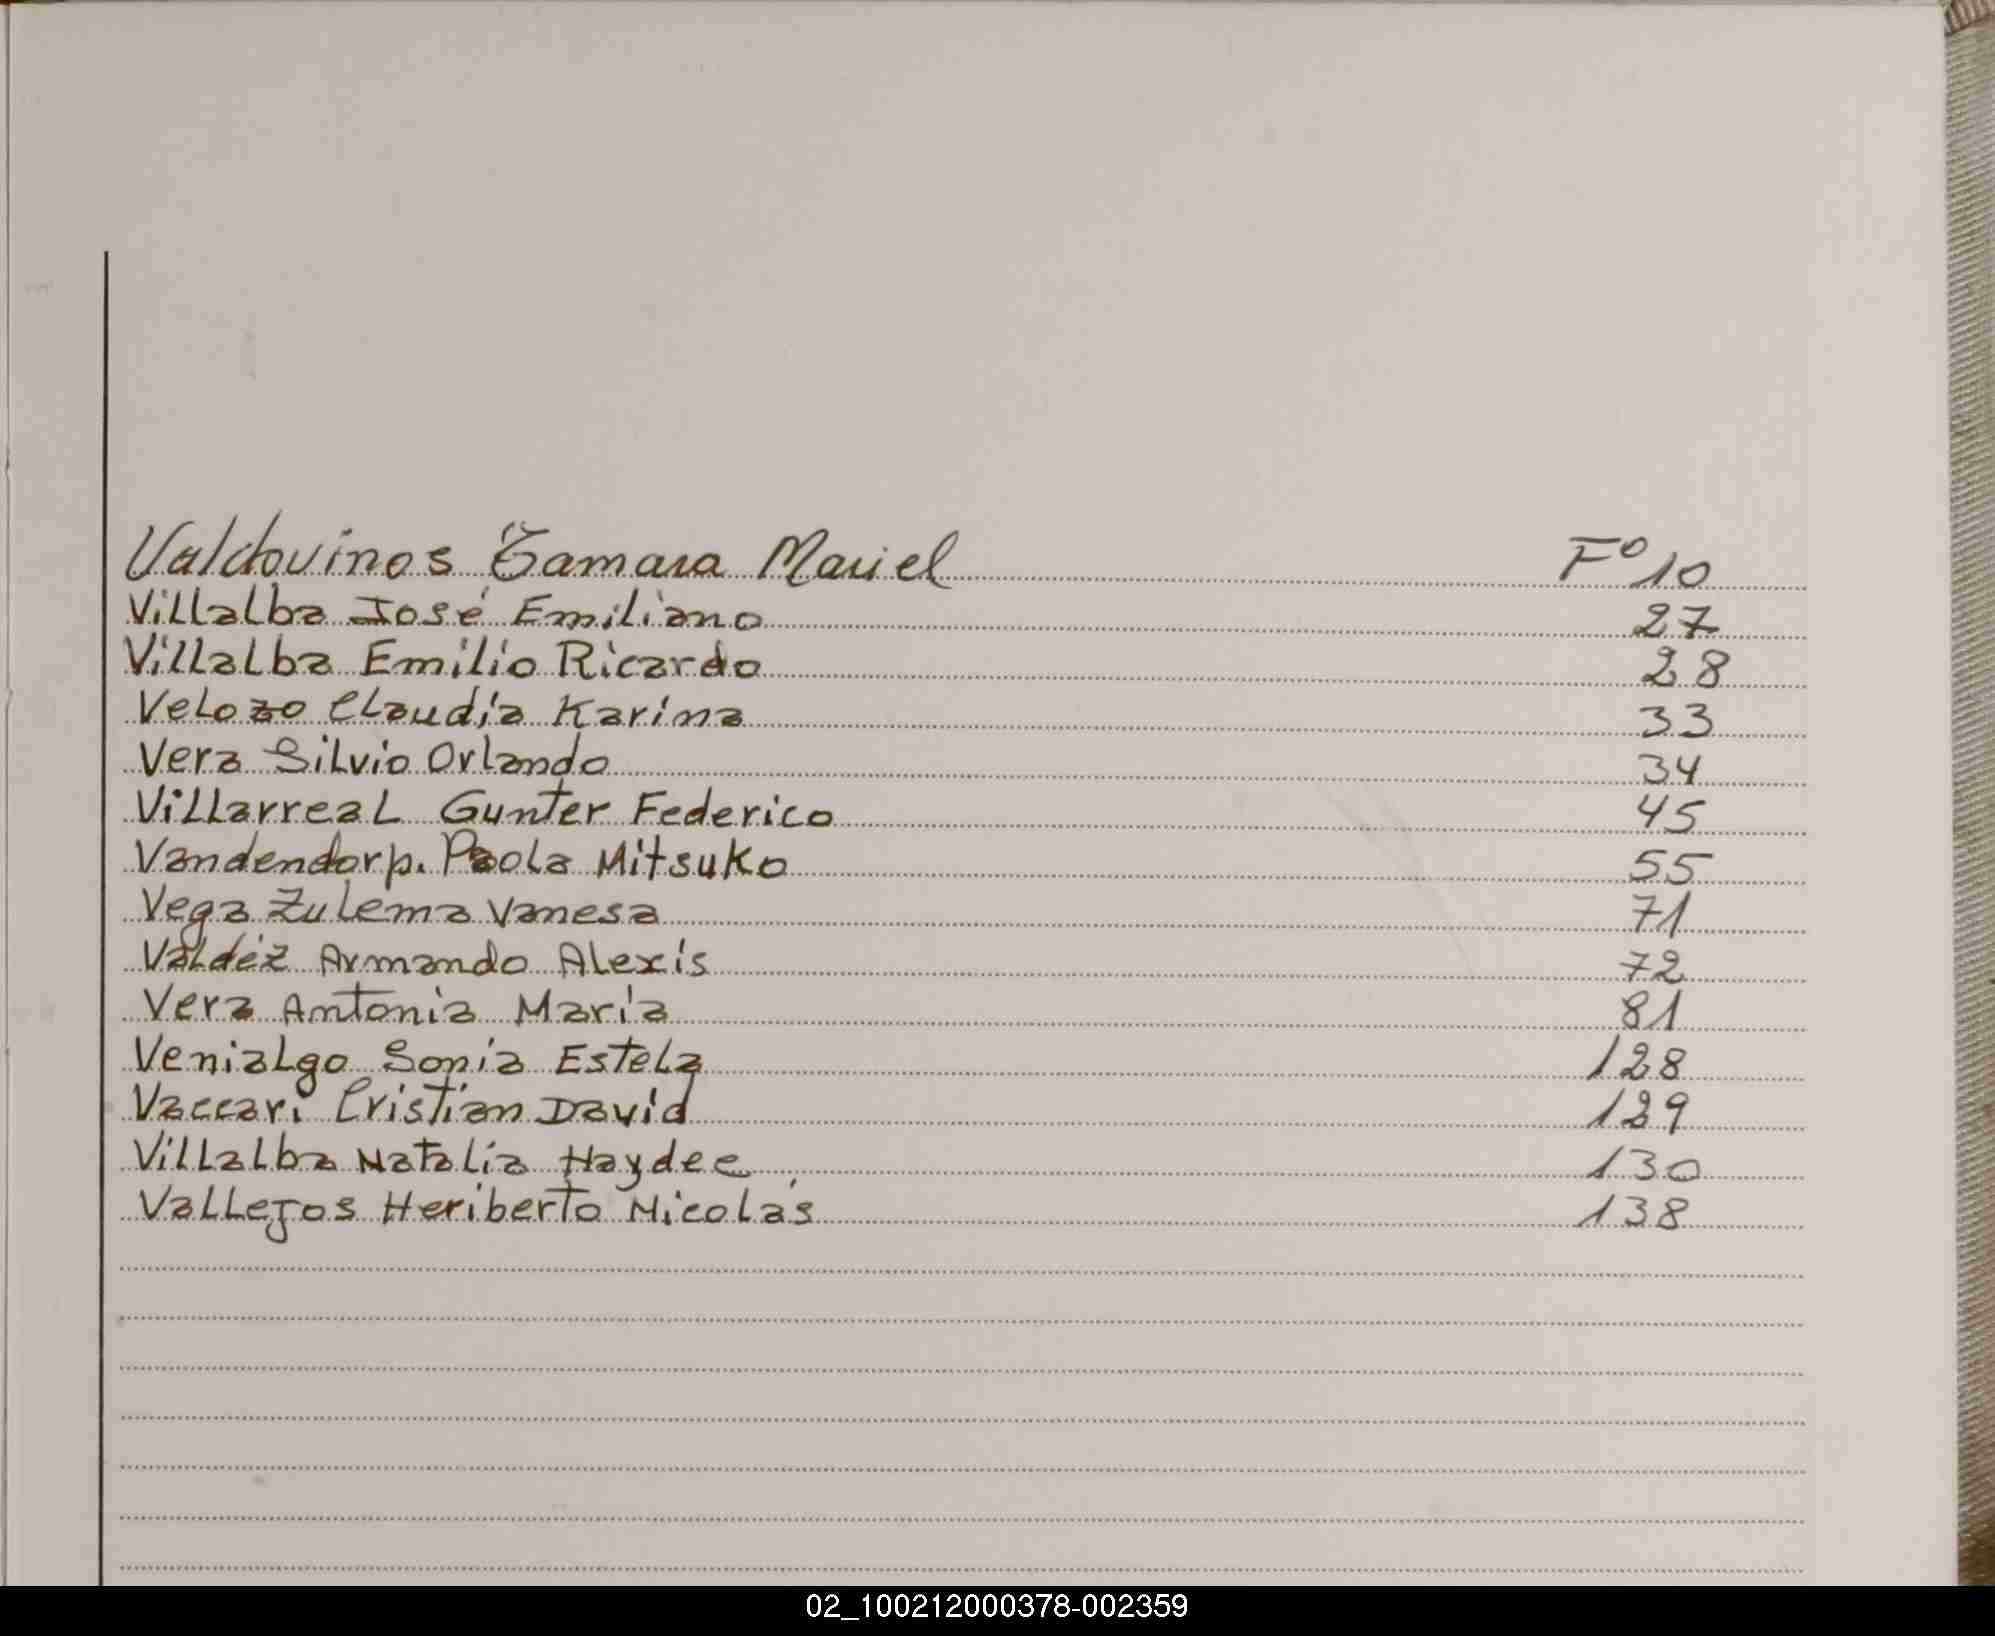 Valdovinos Tamara Mariel F° 10
Villalba José Emiliano 27
Villalba Emilio Ricardo 28
Velozo Claudia Karina 33
Vera Silvio Orlando 34
Villarreal Gunter Federico 45
Vandendorp. Paola Mitsuko 55
Vega Zulema Vanesa 71
Valdéz Armando Alexis 72
Vera Antonia María 81
Venialgo Sonia Estela 128
Vaccari Cristian David 129
Villalba Natalia Haydee 130
Vallejos Heriberto Nicolás 138
02_100212000378-002359